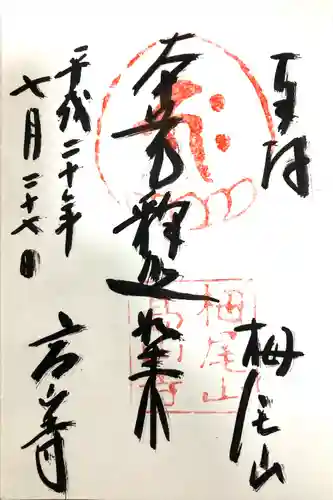 奉拝
栂尾山
本尊釈迦如来
平成二十年
七月二十七日
高山寺
栂尾山
高山寺